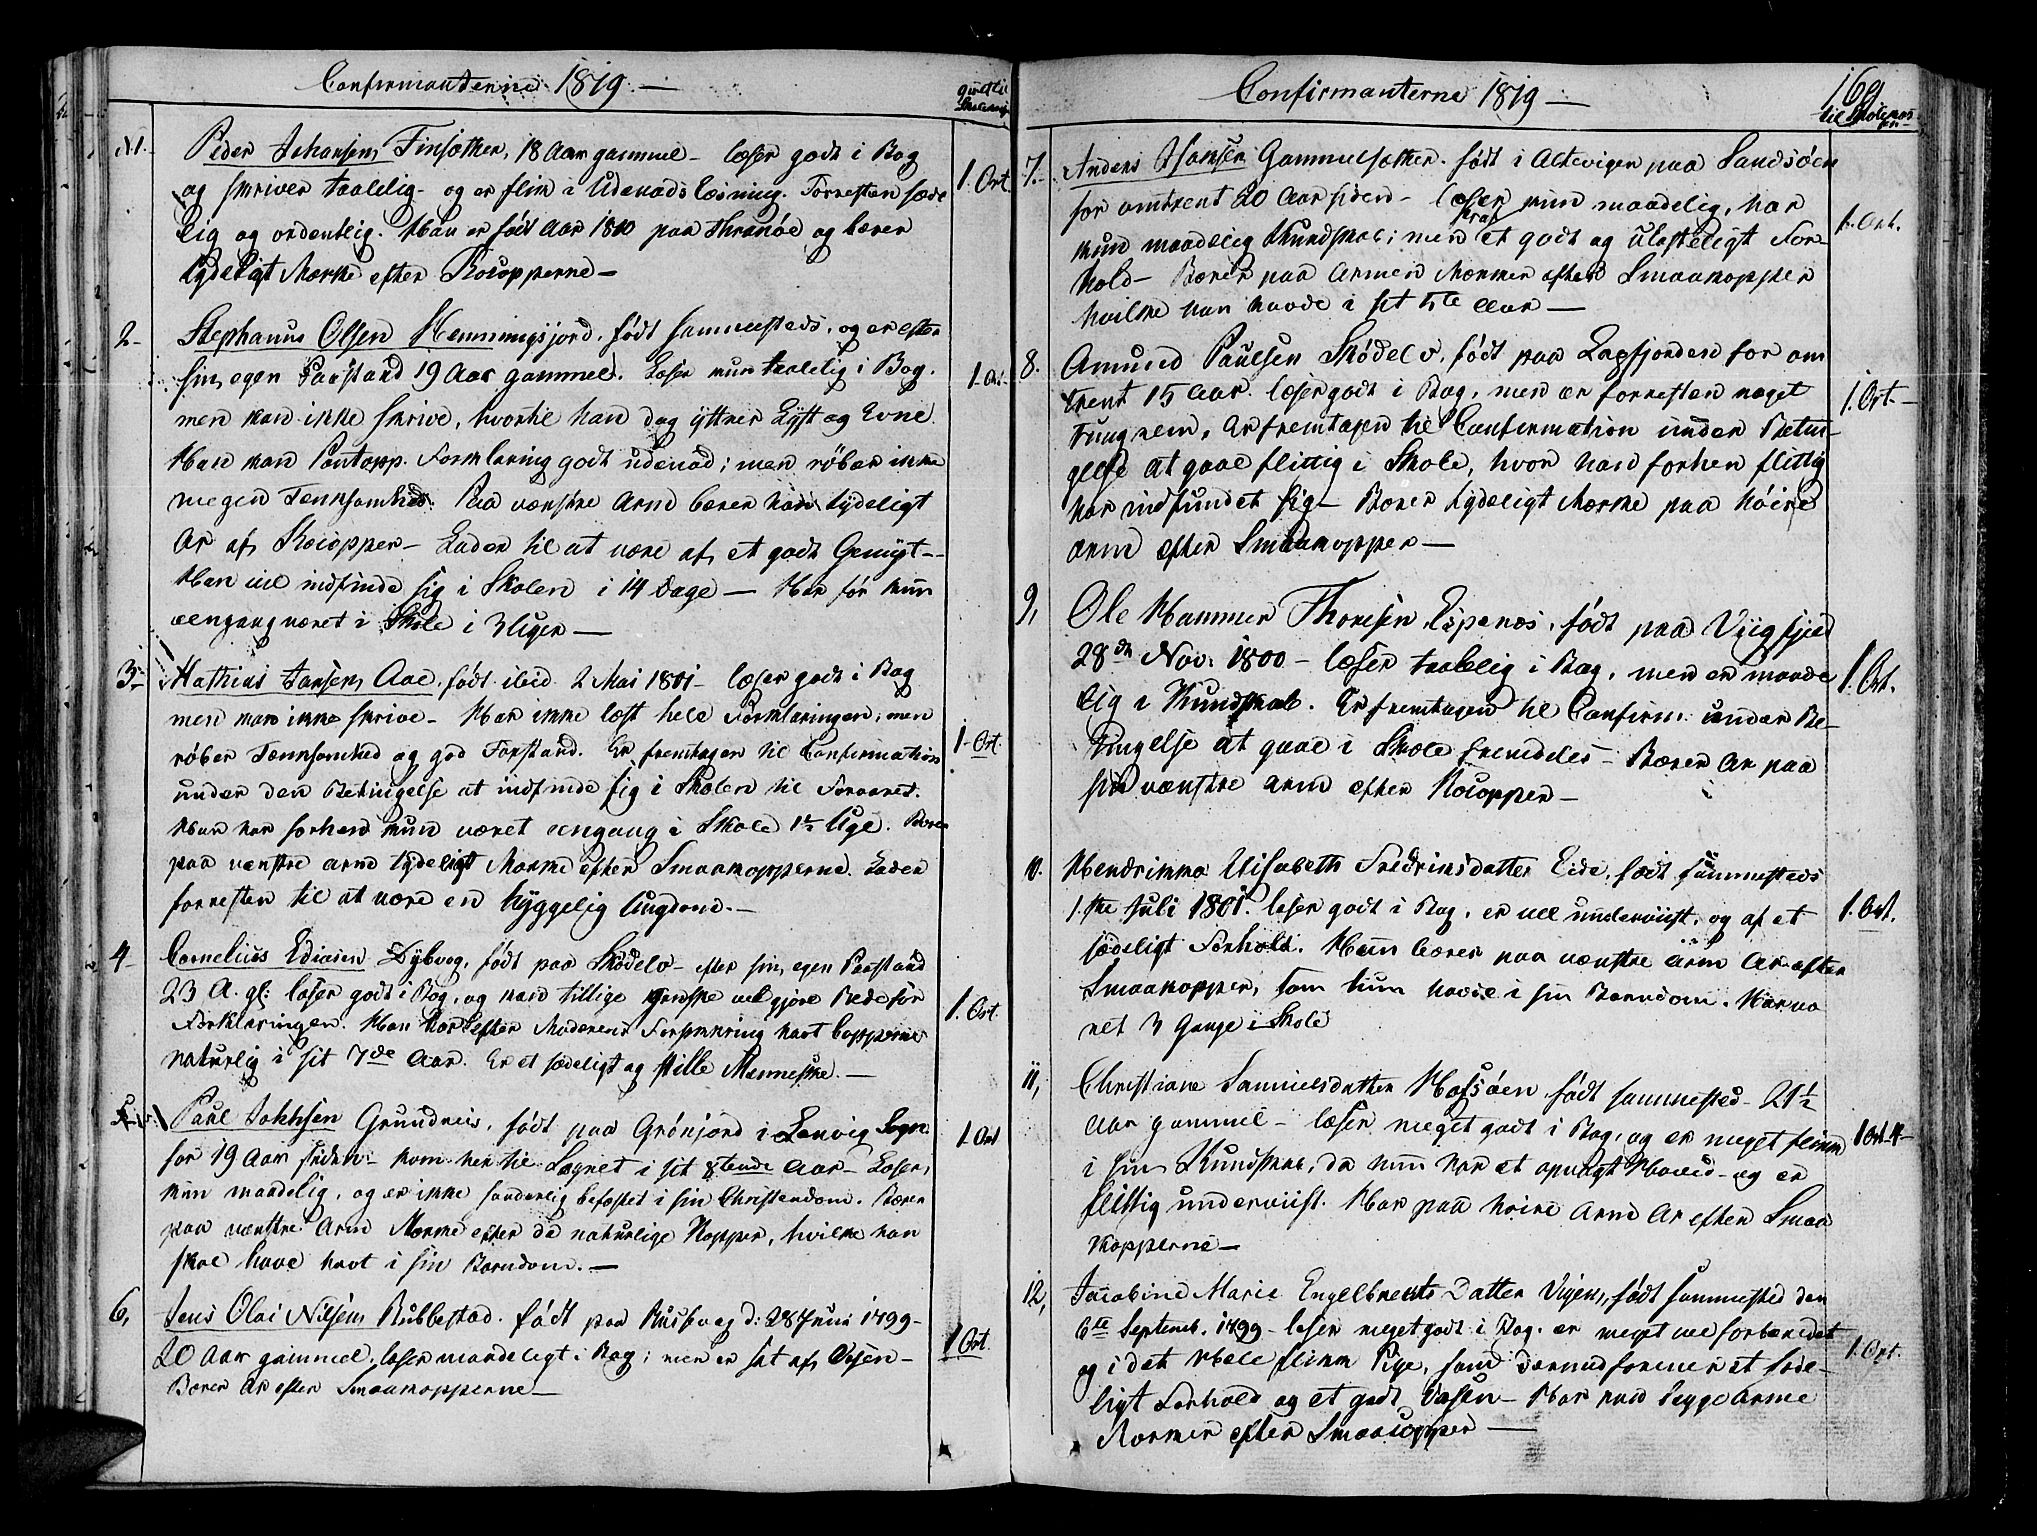 Confirmanterne 1819 —
givet til Skolecassen
N 1. Peder Johansen, Finsæther, 18 Aar gammel – læser godt i Bog
og skriver taalelig – og er flink i Udenads Læsning. Forresten sæde
lig og ordentlig. Han er født Aar 1800 paa Thranøe og bærer
tydeligt Mærke efter Kocopperne —
1. Ort.
2 – Stephanus Olsen Henningsjord, født sammesteds, og er efter
sin egen Paastand 19 Aar gammel. Læser kun taalelig i Bog.
men kan ikke skrive, hvortil han dog yttrer Lyst og Evne.
Han kan Pontopp. Forklaring godt udenad; men røber ikke
megen Tænksomhed. Paa venstre Arm bærer han tydeligt
Ar af Kocopper – Lader til at være af et godt Gemyt –
Han vil indfinde sig i Skolen i 14 Dage — Har før kun
eengang været i Skole i 3 Uger —
1. Ort.
3 – Mathias Jansen, Aae, født ibid 2 Mai 1801 – læser godt i Bog
men kan ikke skrive – Har ikke læst hele Forklaringen; men
røber Tænksomhed og god Forstand. Er fremtagen til Confirmation
under den Betingelse at indfinde sig i Skolen til Foraaret.
Han har forhen kun været eengang i Skole 1½ Uge. Bærer
paa venstre arm tydeligt Mærke efter Smaakopperne. Lader
forresten til at være en hyggelig Ungdom. —
1. Ort.
4 – Cornelius Ediasen Dybvog, født paa Skødelv – efter sin egen Paastand
23 A. gl: læser godt i Bog, og kan tillige ganske vel gjøre Rede for
Forklaringen. Han har efter Moderens Forsikkring havt Copperne
naturlig i sit 7de Aar. Er et sædeligt og stille Menneske. —
1. Ort.
5. Paul Johnsen Grundnes, født paa Grønjord i Lenvig Sogn
for 19 Aar siden – kom her til Sognet i sit 8tende Aar – Læser,
kun maadelig, og er ikke sonderlig befæstet i sin Christendom. Bærer
paa venstre Arm Mærke efter de naturlige Kopper, hvilke han
skal have havt i sin Barndom. —
1 Ort
6, Jens Olai Nilsen, Rubbestad. født paa Rusevaag d: 28 Juni 1799 –
20 Aar gammel, læser maadeligt i Bog; men er sat af Væsen –
Bærer Ar efter Smaakopperne —
1 Ort.
Confirmanterne 1819 —
169
til Skolecassen
7. – Anders Hansen Gammelsæther. født i Altevigen paa Sandsøen
for omtrent 20 Aar siden – læser kun maadelig, har
kun maadelig Kundskab; men et godt og ulasteligt For-
hold – Bærer paa Armen Mærker efter Smaakopper
hvilke han havde i sit 5te Aar —
1. Ort.
8. Amund Paulsen Skødelv, født paa Lapfjorden for om
trent 15 Aar. læser godt i Bog, men er forresten noget
tungnem. Er fremtagen til Confirmation under Betin-
gelse at gaae flittig i Skole, hvor han forhen flittig
har indfundet sig – Bærer tydeligt Mærke paa høire
arm efter Smaakopper —
1. Ort. –
9, Ole Hammer Thoresen, Espenæs, født paa Vygsfjed
28de Nov: 1800 – læser taalelig i Bog, men er maade
lig i Kundskab. Er fremtagen til Confirm. under Be-
tingelse at gaae i Skole fremdeles – Bærer Ar paa
sin venstre arm efter Kocopper —
1. Ort.
10. Hendrikka Elisabeth Fredriksdatter Eide, født sammesteds
1.ste Juli 1801. læser godt i Bog, er vel underviist, og af et
sædeligt Forhold. Hun bærer paa venstre Arm Ar efter
Smaakopper, som hun havde i sin Barndom. Har væ
ret 3 Gange i Skole
1. Ort.
11, Christiane Samuelsdatter Hofsøen født sammested – 21½
Aar gammel – læser meget godt i Bog, og er meget flink
i sin Kundskab, da hun har et opvagt Hoved – og er
flittig underviist. Har paa høire Arm Ar efter Smaa
kopperne —
1 Ort –
12, Jacobine Marie Engelbrects Datter Vigen, født sammested den
6te Septemb. 1799 – læser meget godt i Bog. er meget vel forberedet
og i det Hele flink Pige, som dermed forener et sæde-
ligt Forhold og et godt Væsen – Har paa begge arme
Mærker efter Smaacopper —
1. Ort.